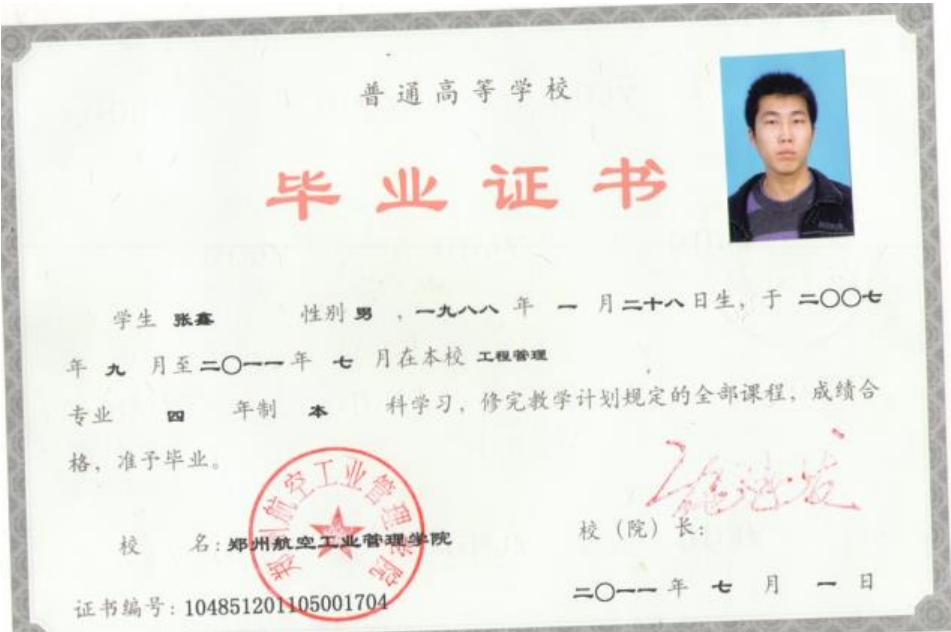 普通高等学校
毕业证书
学生 张鑫 性别 男 ,一九八八 年 一 月二十八日生,于 二〇〇七
年 九 月至二〇一一年 七 月在本校 工程管理
专业 四 年制 本 科学习,修完教学计划规定的全部课程,成绩合
格,准予毕业。
郑州航空工业管理学院
校 名:郑州航空工业管理学院
校(院)长:
证书编号:104851201105001704
二〇一一 年 七 月 一 日